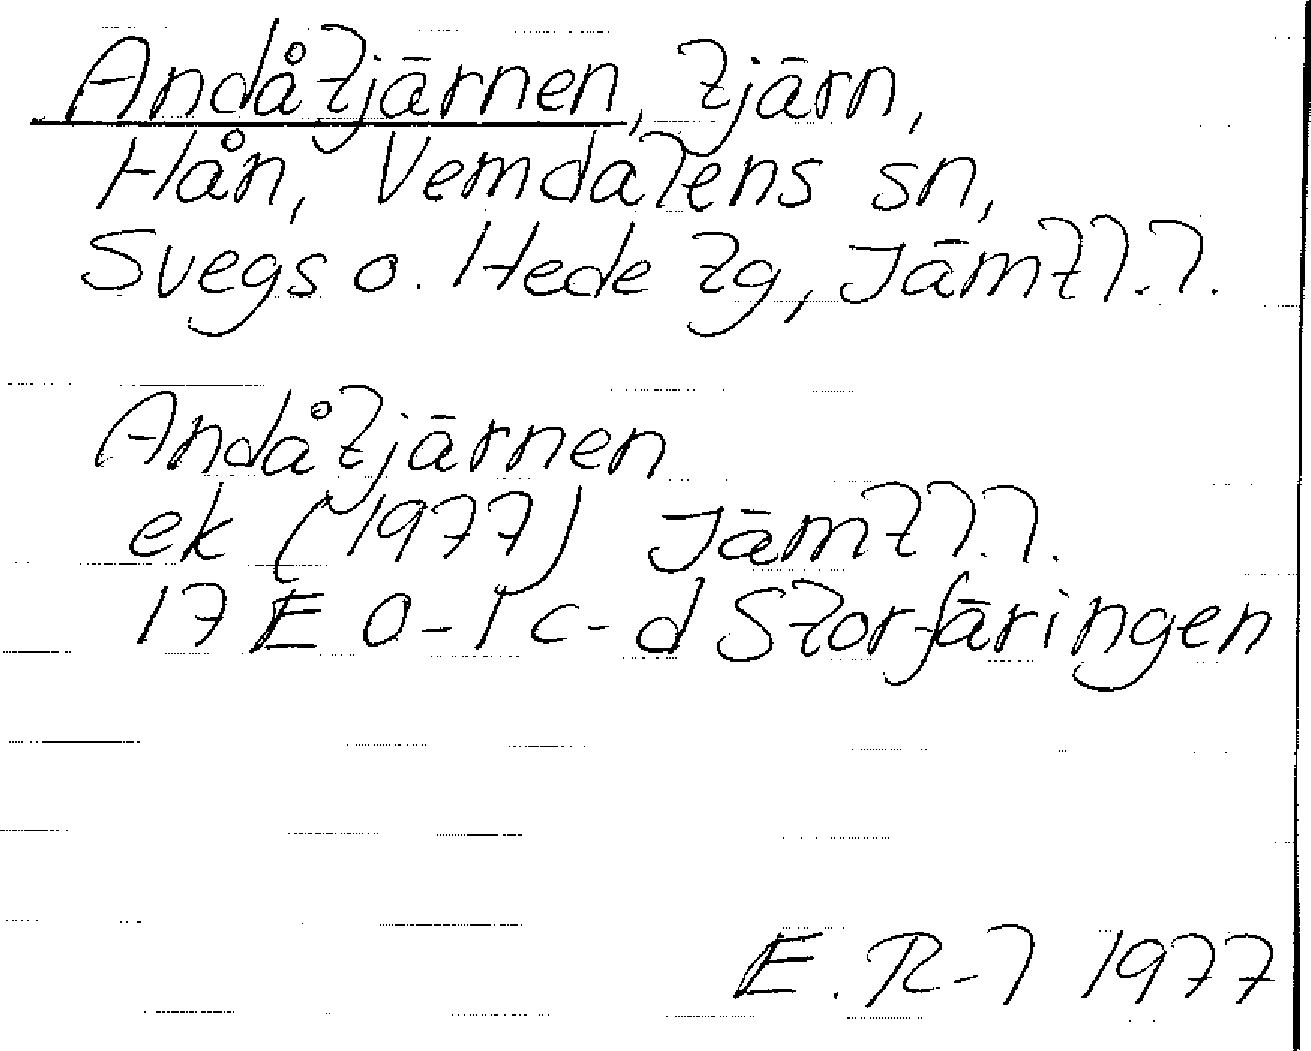 Andåtjärnen, tjärn,
Hån, Vemdalens sn,
Svegs o. Hede tg, Jämtl.l.
Andåtjärnen
ek (1977) Jämtl.l.
17 E 0-1 c-d Storfäringen
E. R-l 1977